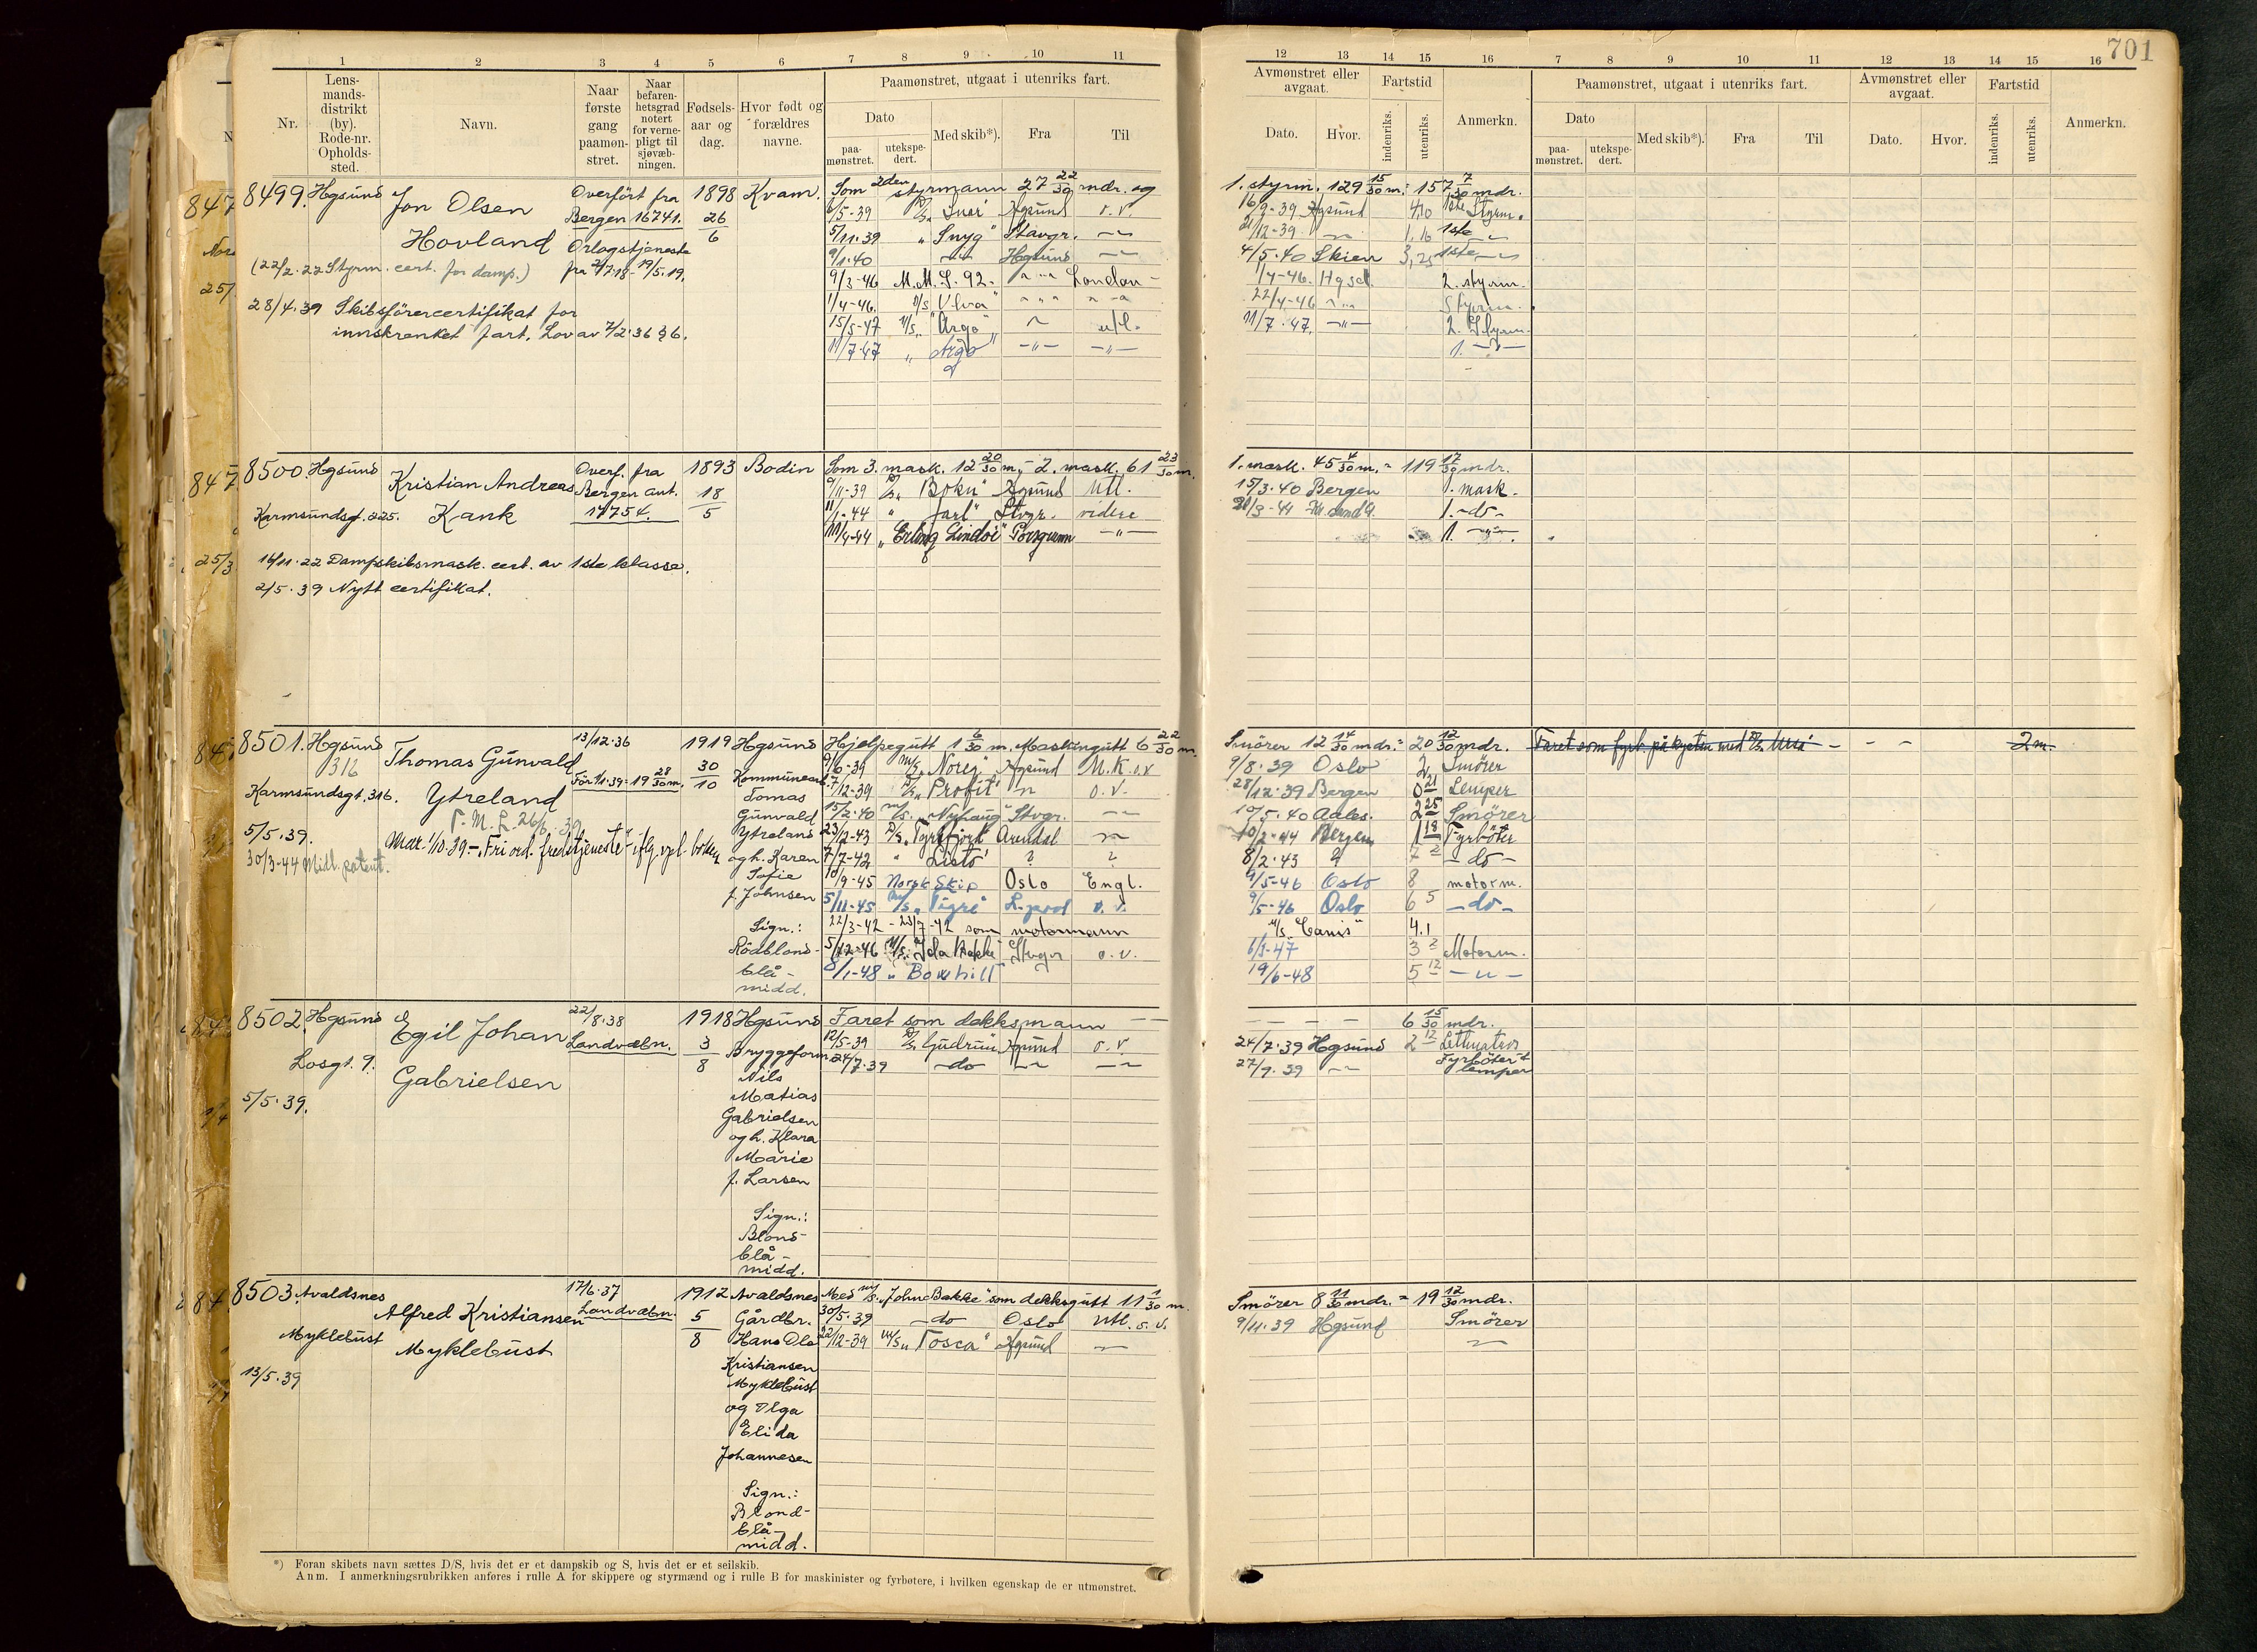 701
1 2 3 4 5 6 7 8 9 10 11
12 13 14 15 16 7 8 9 10 11 12 13 14 15 16
Nr.
Lens-
mands-
distrikt
(by).
Rode-nr.
Opholds-
sted.
Navn.
Naar
første
gang
paamøn-
stret.
Naar
befaren-
hetsgrad
notert
for verne-
pligt til
sjøvæb-
ningen.
Fødsels-
aar og
dag.
Hvor født og
forældres
navne.
Paamønstret, utgaat i utenriks fart.
Dato
paa-
mønstret.
utekspe-
dert.
Med skib*).
Fra
Til
Avmønstret eller
avgaat.
Dato.
Hvor.
Fartstid
indenriks.
utenriks.
Anmerkn.
Paamønstret, utgaat i utenriks fart.
Dato
paa-
mønstret.
utekspe-
dert.
Med skib*).
Fra
Til
Avmønstret eller
avgaat.
Dato.
Hvor.
Fartstid
indenriks.
utenriks.
Anmerkn.
8499. Hgsund
Jon Olsen
Hovland
(22/2.22 Styrm. cert. for damp.)
28/4.39 Skibsförercertifikat for
innskrenket fart. Lov av 7/2.36 § 6.
Overfört fra
Bergen 16741.
Orlogstjeneste
1898
26
6
Kvam.
Som 2den styrmann 27 22/30 mdr. og
1. styrm. 129 15/30 m. = 157 7/30 mdr.
Hgsund o.v.
5/11.39 „ Snyg" Stavgr. —
9/1.40 Hgsund
9/3-46 M.M.S. 92. London
1/4-46
15/5-47 M/S „Argo" u/l.
11/7.47 „ Argo
16/9-39 Hgsund 4.10 1ste Styrm.
1.16 1ste
4/5.40 Skien 3,25 1ste
1/4-46. Hgsd. 2. styrm.
22/4-46 Styrm.
11/7.47. —"— 2. Styrm.
1. —"—
8500. Hgsund
Kristian Andreas
Karmsundsgt. 225. Kank
16/11.22 Dampskibsmask. cert. av 1ste klasse.
2/5.39 Nytt certifikat.
Overf. fra
Bergen ant.
17754.
1893
18
5
Bodin
Som 3. mask. 12 20/30 m, - 2. mask. 61 23/30 m.
1. mask. 45 4/30 m. = 119 17/30 mdr.
9/11-39 D/S „ Bokn" Hgsund Utl.
„ Jarl" Stvgr. videre
11/4-44 „ Erling Lindöe" Porsgrunn —"—
15/3.40 Bergen 1. mask.
1.-do-
1. —"—
8501. Hgsund
316
Thomas Gunvald
Karmsundsgt. 316. Ytreland
P.M.L. 26/6.39
5/5.39.
30/3-44 Midl. patent.
13/12.36
För 1/1.39 = 19 28/30 m.
1919
30
10
Hgsund
Tomas
Gunvald
Ytreland
og h. Karen
Sofie
f. Johnsen
Sign.:
Rödblond-
blå-
midd.
Hjelpegutt 1 6/30 m. Maskingutt 6 22/30 m.
Smörer 12 14/30 mdr. = 20 12/30 mdr.
9/6-39 M/S „Noreg" Hgsund M.K. o.v
7/12-39 D/S „Profit" o.v.
15/2.40 M/S. „Nyhaug" Stvgr.
23/2-43 D/S „Tyrifjord" Arendal
7/7-42 „ Listo ? ?
10/9-45 Norsk Skip Oslo Engl.
5/11-45 M/S „Tigre" L.pool o.v.
22/3-42 - 23/7-42 som motormann
5/12-46 M/S. „Ida Bakke" Stvgr o.v.
8/1-48 „ Bowhill
9/8.39 Oslo 2 Smörer
28/12.39 Bergen 0 21 Lemper
10/5.40 Aales. 2 25 Smörer
10/2-44 Bergen 1 18 Fyrböter
8/2.43 ? 7 2 -do-
9/5-46 Oslo 8 motorm.
9/5-46 Oslo 6 5 -do-
M/S „Canis" 4.1
3 2 Motorm.
19/6-48 5 12 -"-
Faret som fyrb. på kysten med D/S Ulla - - - 2 m.
8502. Hgsund
Egil Johan
Losgt. 9.
Gabrielsen
5/5.39.
22/8.38
Landvæbn.
1918
3
8
Hgsund
Bryggeform.
Nils
Matias
Gabrielsen
og h. Klara
Marie
f. Larsen
Sign.:
Blond-
blå-
midd.
Faret som dekksmann
6 15/30 mdr.
12/5.39 D/S „Gudrun" Hgsund o.v.
24/7.39 -do-
24/7.39 Hgsund 2 12 Lettmatros
27/9.39 Fyrböter &
lemper
8503. Avaldsnes
Alfred Kristiansen
Myklebust
Myklebust
13/5.39
17/6.37
Landvæbn.
1912
5
8
Avaldsnes
Gårdbr.
Hans Ola
Kristiansen
Myklebust
og Olga
Elida
Johannesen
Sign.:
Blond-
blå-
midd.
Med M/S. „John Bakke" som dekksgutt 11 1/30 m.
Smörer 8 11/30 mdr. = 19 12/30 mdr.
30/5.39 -do Oslo Utl. o.v.
22/12-39 M/S „Tosca" Hgsund
9/11.39 Hgsund Smörer
*) Foran skibets navn sættes D/S, hvis det er et dampskib og S, hvis det er et seilskib.
Anm. I anmerkningsrubrikken anføres i rulle A for skippere og styrmænd og i rulle B for maskinister og fyrbøtere, i hvilken egenskap de er utmønstret.